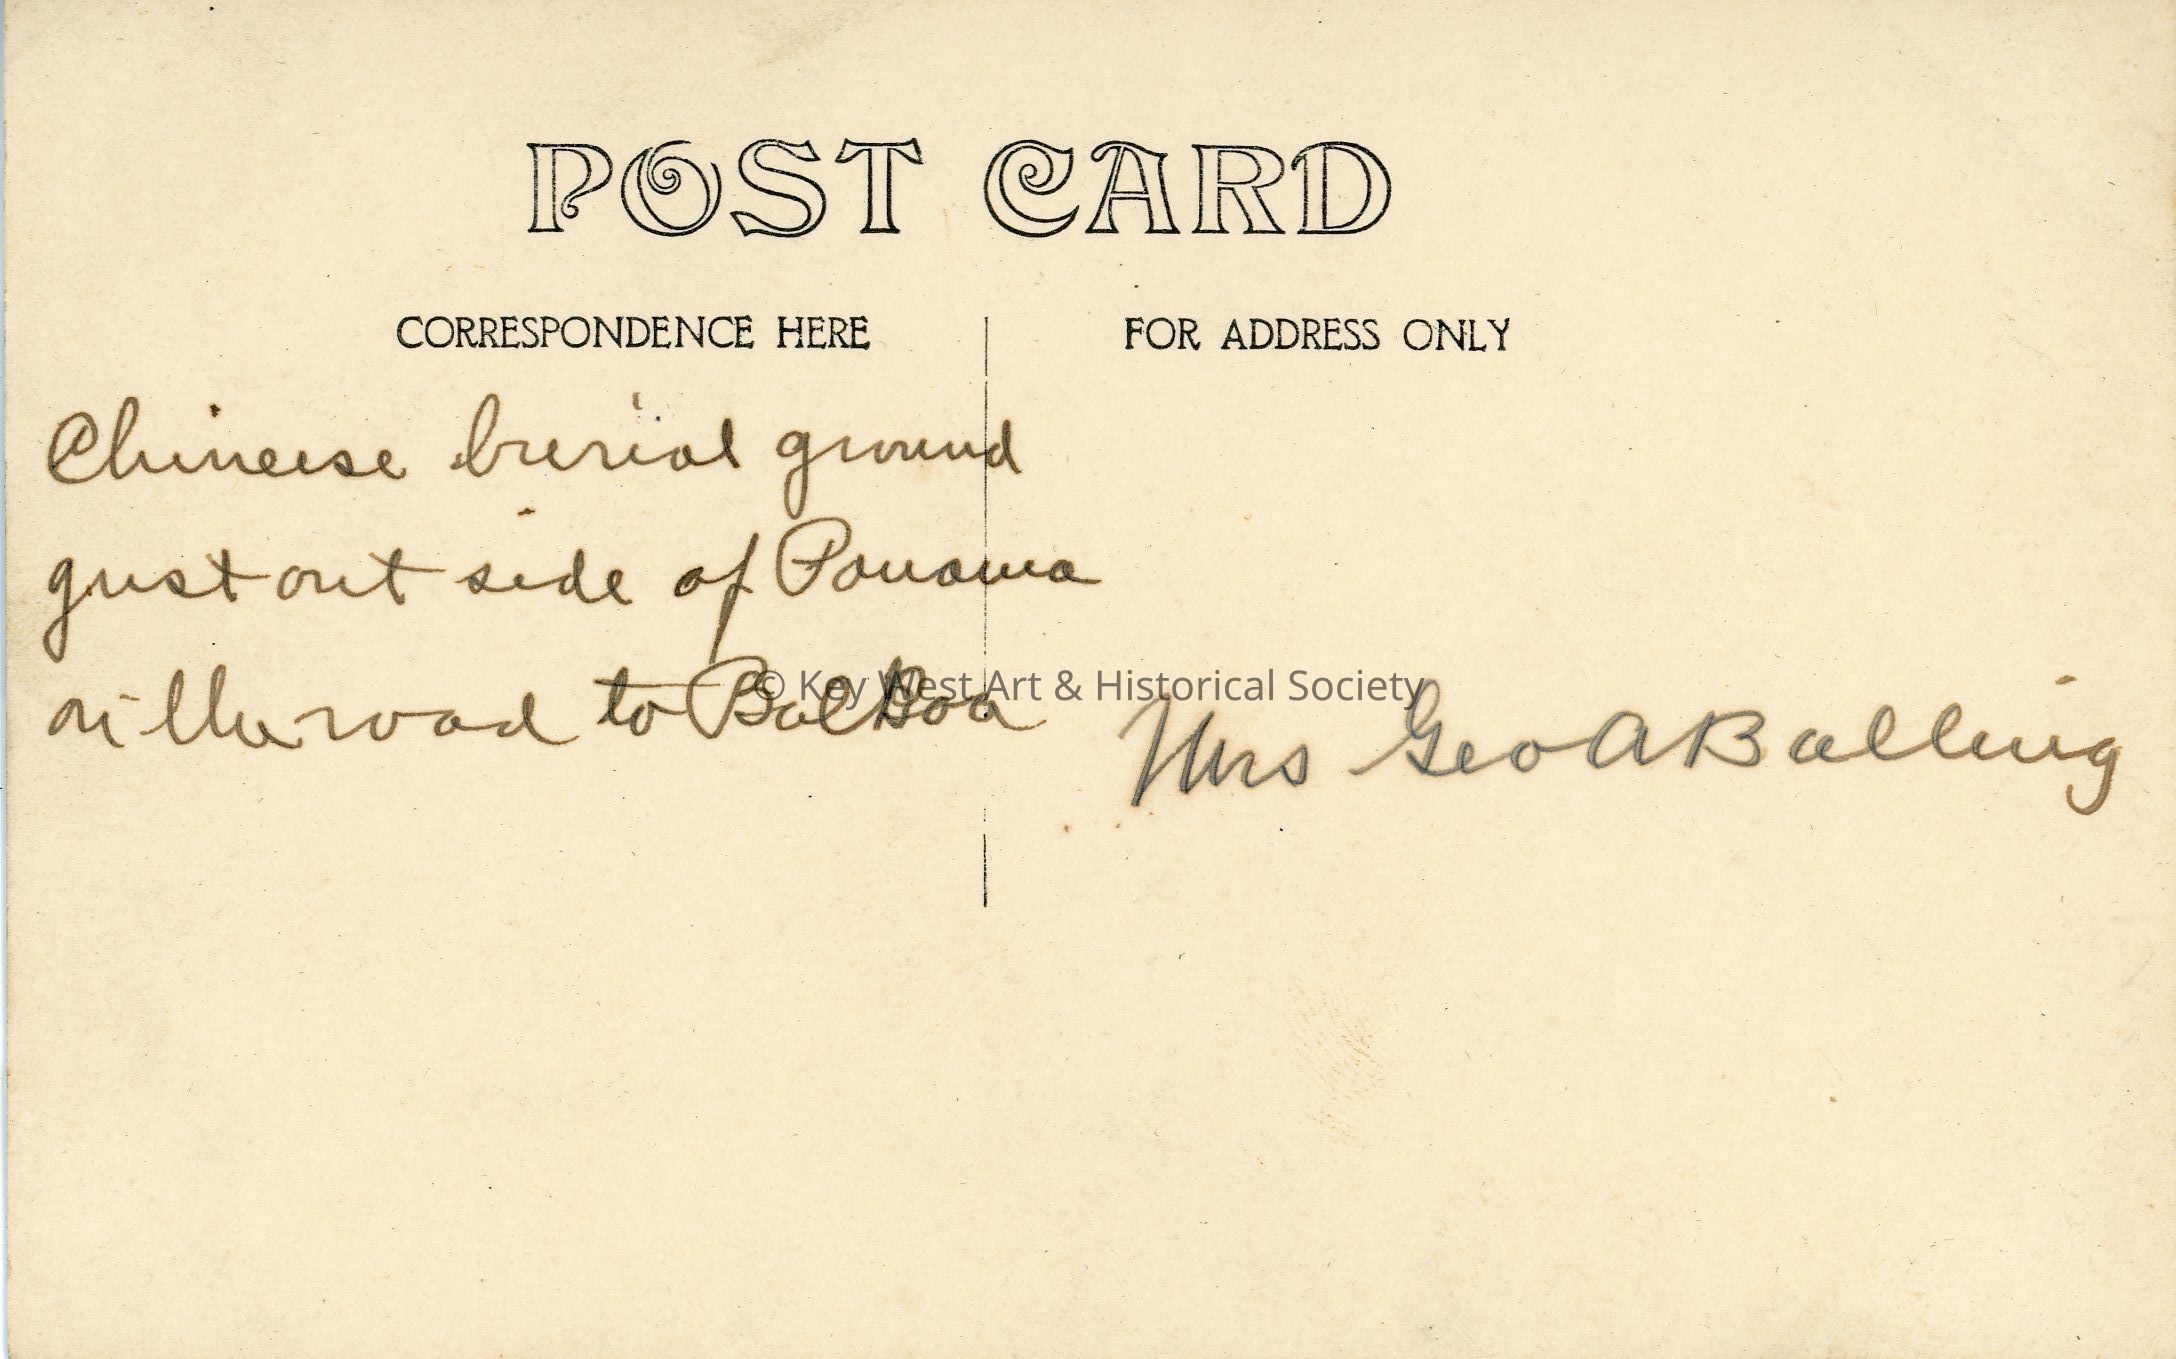 POST CARD
CORRESPONDENCE HERE
FOR ADDRESS ONLY
Chineise burial ground
gust out side of Panama
on the road to Balboa
© Key West Art & Historical Society
Mrs Geo A Balling